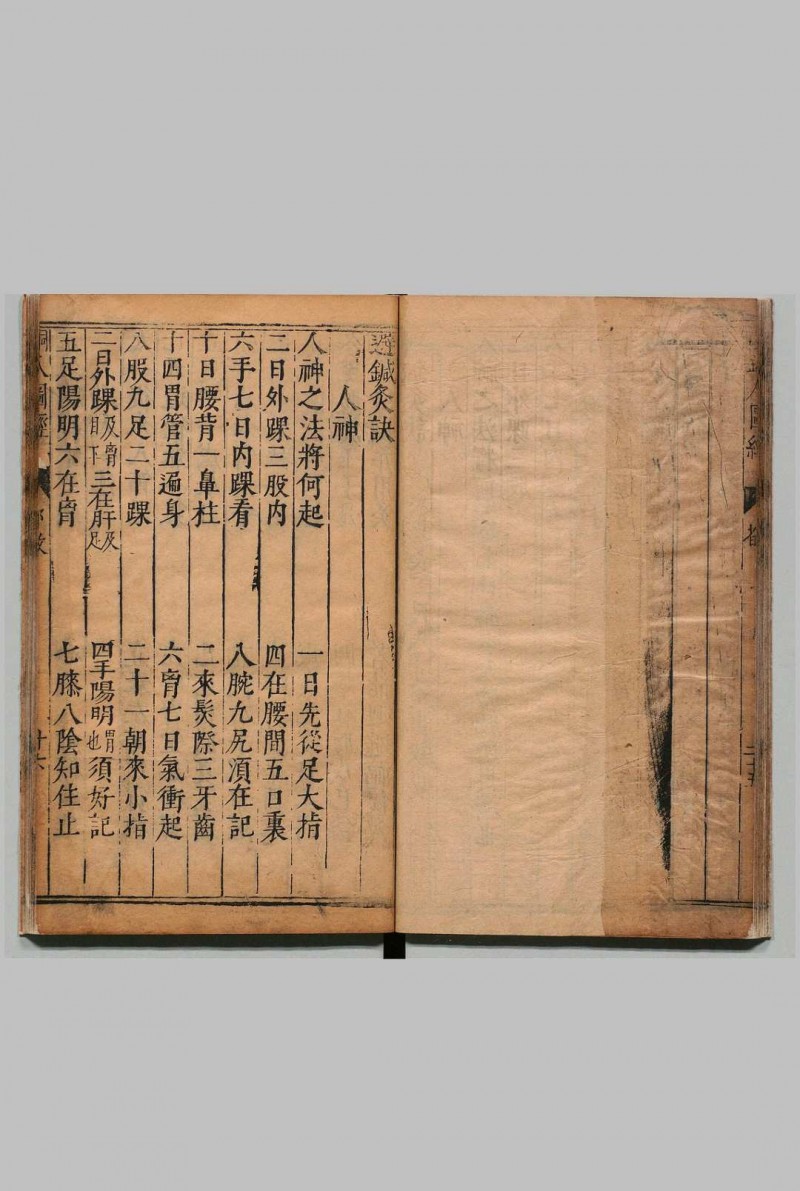 避鍼灸訣
人神
人神之法將何起 一日先從足大指
二日外踝三股内 四在腰間五口裏
六手七日内踝看 八腕九尻湏在記
十日腰背一鼻柱 二來髮際三牙齒
十四胃管五遍身 六胷七日氣衝起
八股九足二十踝 二十一朝來小指
二日外踝及胷目下三在肝及足 四手陽明胃也須好記
五足陽明六在胷 七膝八陰知住止
銅人圖經